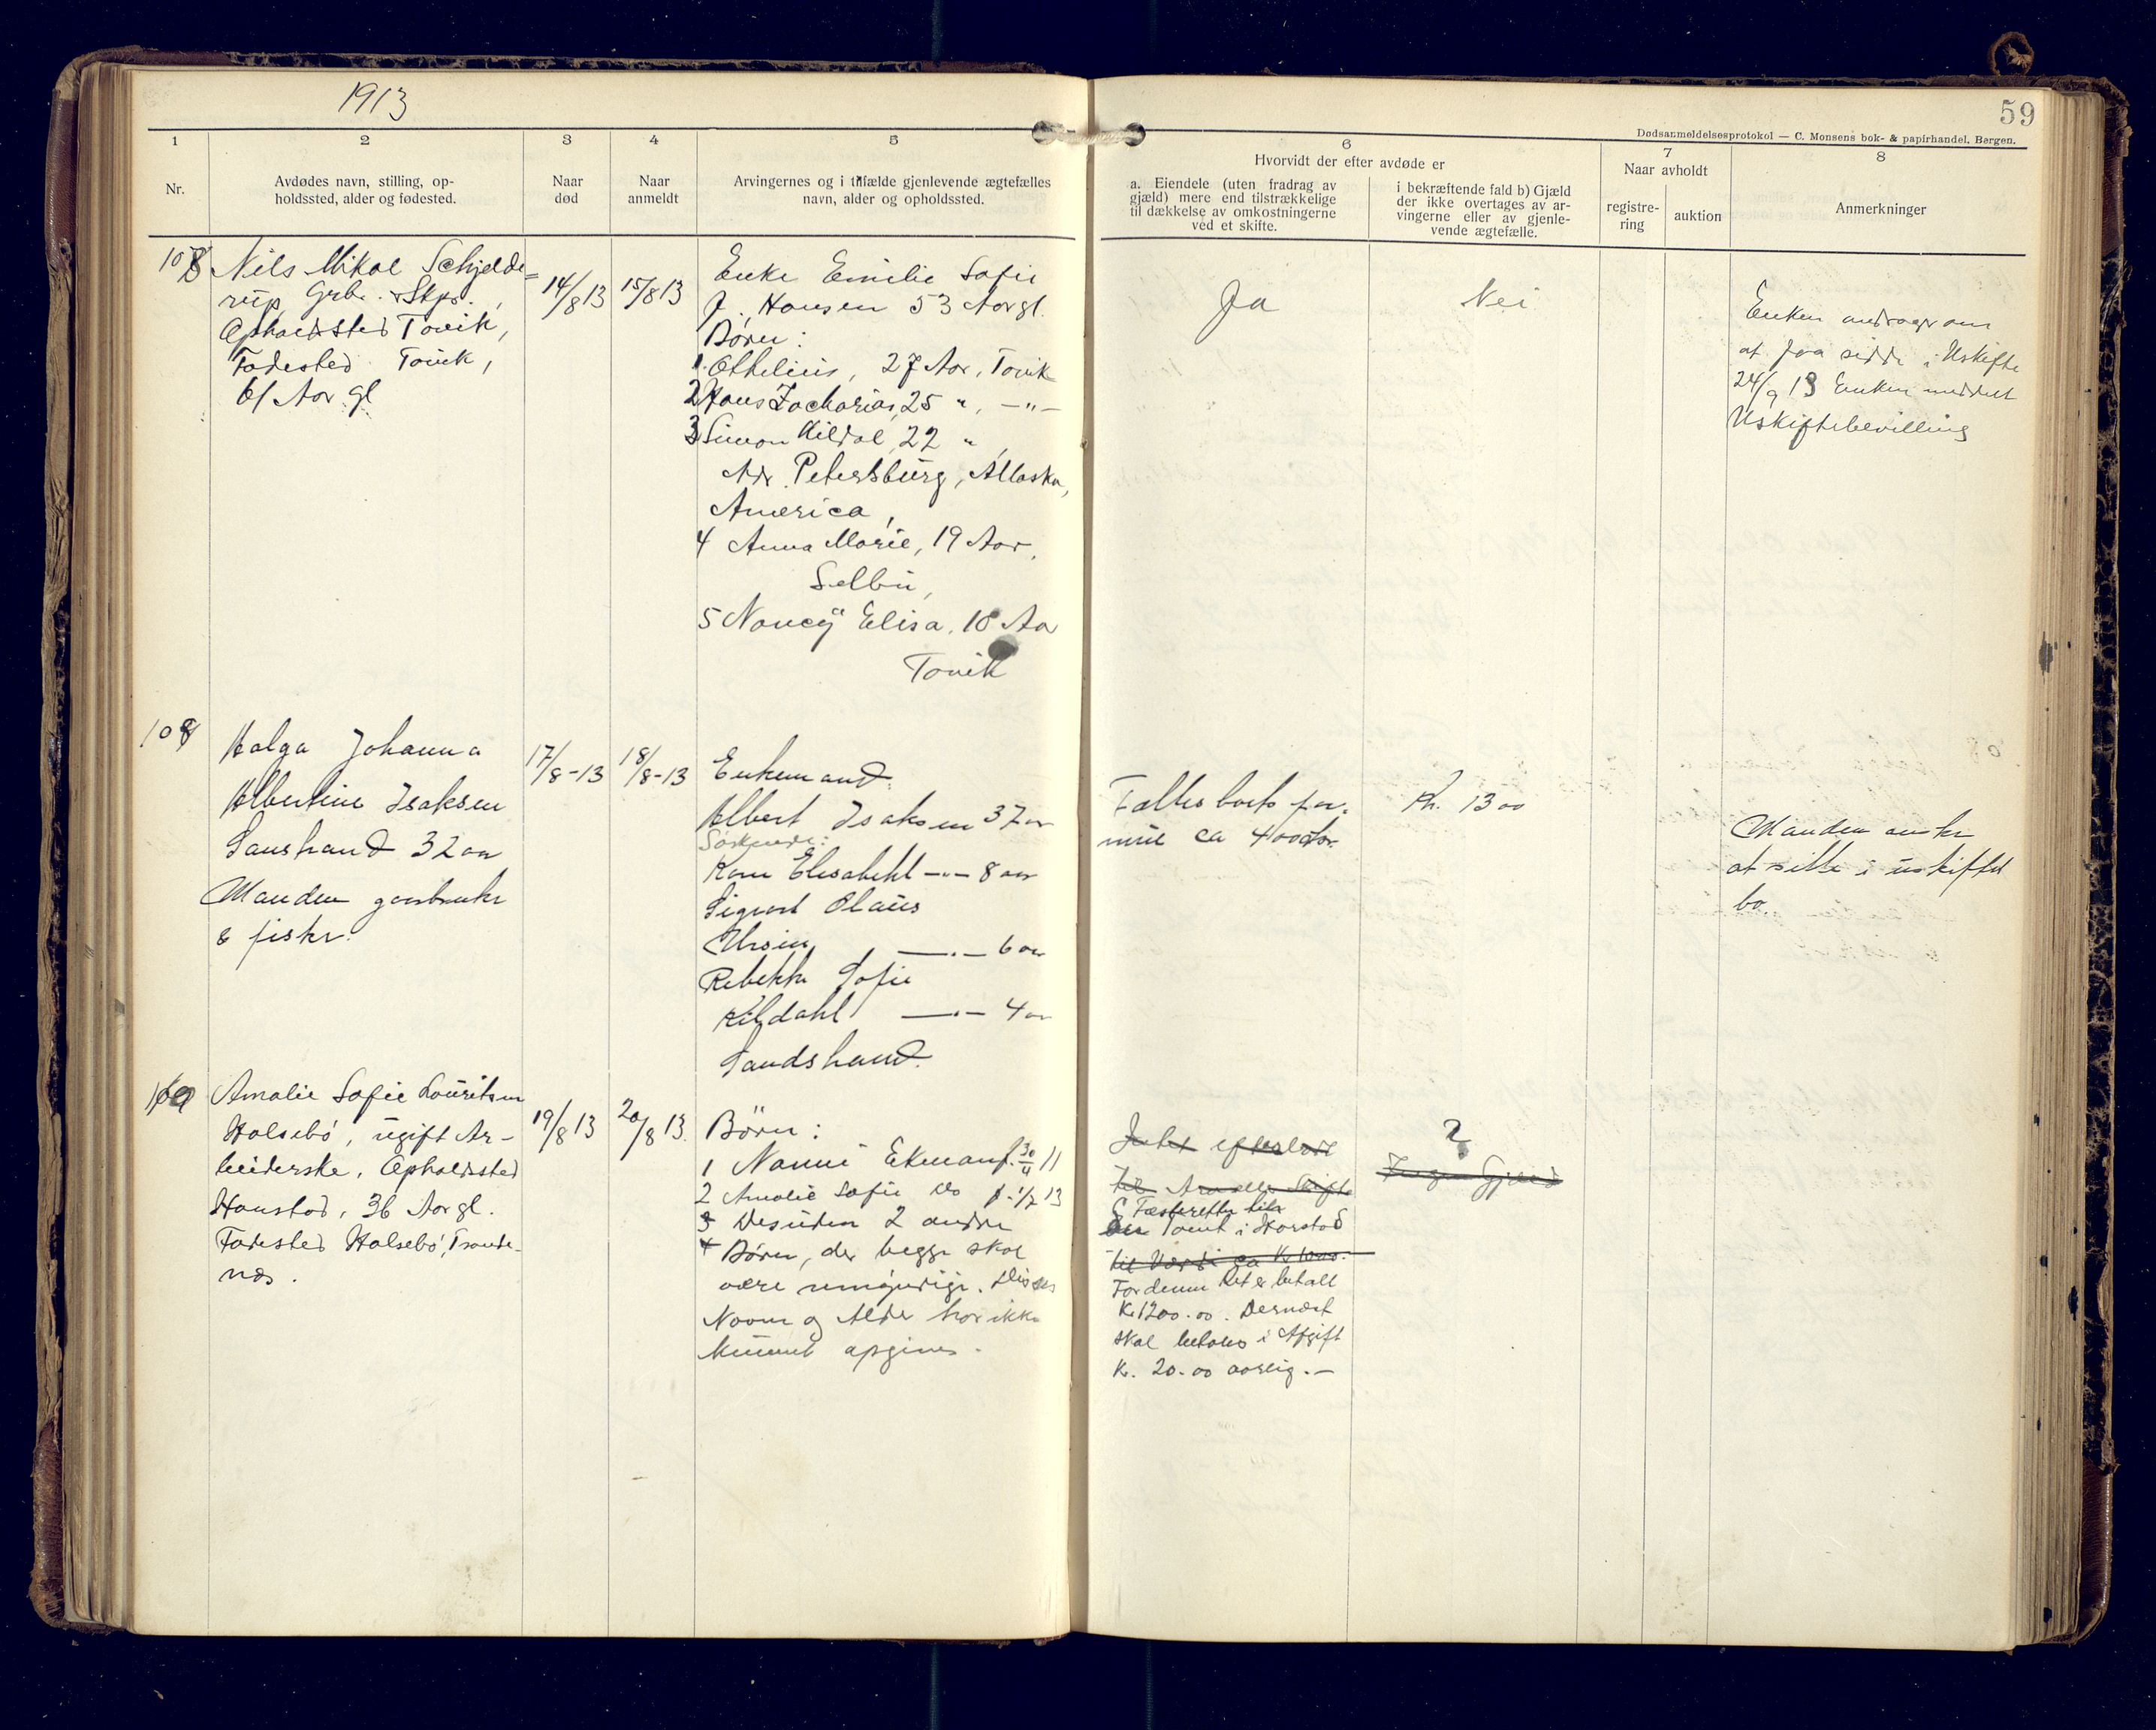 1913
59
Dødsanmeldelsesprotokol — C. Monsens bok- & papirhandel, Bergen.
1
Nr.
2
Avdødes navn, stilling, op-
holdssted, alder og fødested.
3
Naar
død
4
Naar
anmeldt
5
Arvingernes og i tilfælde gjenlevende ægtefælles
navn, alder og opholdssted.
6
Hvorvidt der efter avdøde er
a. Eiendele (uten fradrag av
gjæld) mere end tilstrækkelige
til dækkelse av omkostningerne
ved et skifte.
i bekræftende fald b) Gjæld
der ikke overtages av ar-
vingerne eller av gjenle-
vende ægtefælle.
7
Naar avholdt
registre-
ring
auktion
8
Anmerkninger
Nils Mikal Schjelde-
rup, Grbr.
Opholdsted Tovik,
Fødested Tovik,
61 Aar gl
14/8 13
15/8 13
Enke Emilie Sofie
f. Hansen 53 Aar gl.
Børn:
1. Othelius, 27 Aar, Tovik
2 Hans Zacharias, 25 ", —"—
3 Simon Kildal, 22 "
Adr. Petersburg, Allaska,
America,
4 Anna Marie, 19 Aar,
Selbu,
5 Nancy Elisa, 18 Aar
Tovik
Ja
Nei
Enken andrager om
at faa sidde i Uskifte
24/9 13 Enken meddelt
Uskiftebevilling
108
Halga Johanna
Albertine Isaksen
Sanshand 32 aar
Manden gaarbruker
& fisker.
17/8-13
18/8-13
Enkemand
Albert Isaksen 37 aar
Søskende:
Elisabeht —"— 8 aar
Sigvart Olaus
Ursin —"— 6 aar
Rebekka Sofie
Kildahl —"— 4 aar
Sandshand.
Fælles boets for-
mue ca 4000 kr.
Kr. 1300
Manden ønsker
at sitte i uskiftet
bo.
109
Amalie Sofie Lauritsen
Halsebø, ugift Ar-
beiderske, Opholdsted
Harstad, 36 Aar gl.
Fødested Halsebø, Tronde-
næs.
19/8 13
20/8 13.
Børn:
1 Nanni Ekman f. 30/4 11
2 Amalie Sofie do f. 1/7 13
3 Desuden 2 andre
4 Børn, der begge skal
være umyndige. Disses
Navn og Alder har ikke
kunnet opgives.
Intet efterladt
til Arv eller Skifte
Fæsteretten til
en Tomt i Harstad
til Værdi ca Kr
For denne Ret er betalt
Kr 1200.00. Dernæst
skal betales i Afgift
Kr. 20.00 aarlig.—
?
Ingen Gjæld